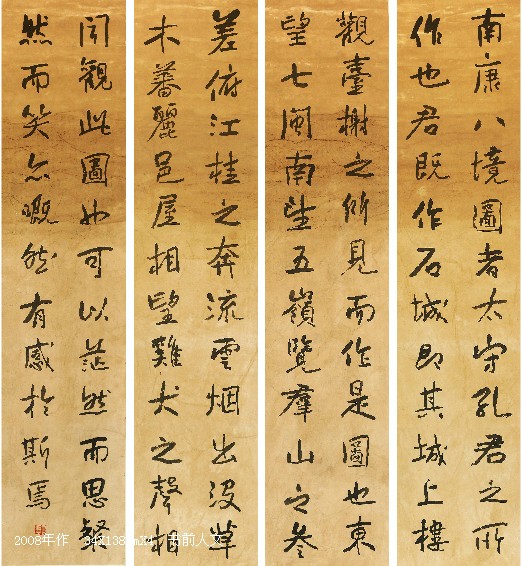 南康八境圖者太守孔君之所
作也君既作石城即其城上樓
觀臺榭之所見而作是圖也東
望七閩南望五嶺覽羣山之參
差俯江桂之奔流雲烟出沒草
木蕃麗邑屋相望雞犬之聲相
聞觀此圖也可以茫然而思粲
然而笑亦嘅然有感於斯焉
2008年作 34X138cmX4 前人文